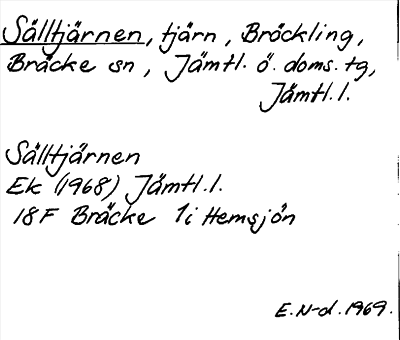 Sålltjärnen, tjärn, Bräckling,
Bräcke sn, Jämtl. ö. doms. tg,
Jämtl. l.
Sålltjärnen
Ek (1968) Jämtl. l.
18F Bräcke 1 i Hemsjön
E. N-d. 1969.